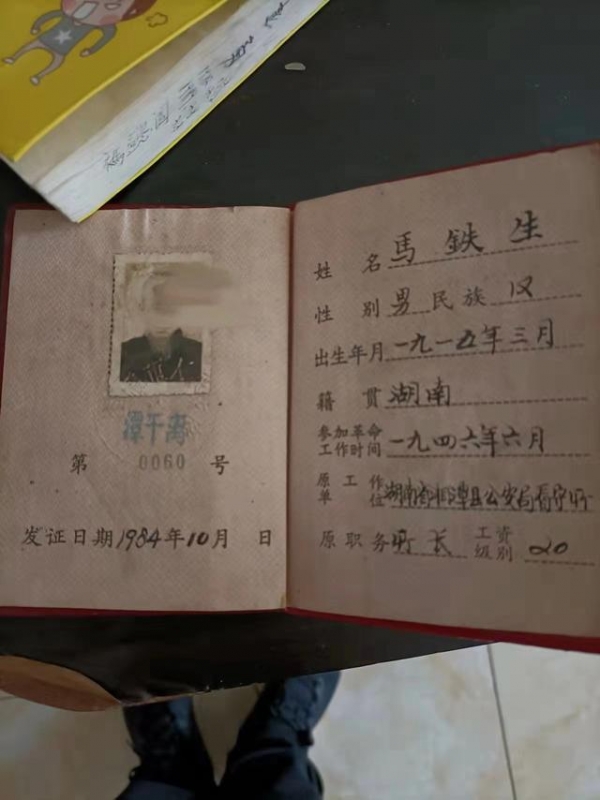 潭干离
第 0060 号
发证日期1984年10月 日
姓 名 馬鉄生
性 别 男 民族 汉
出生年月 一九一五年三月
籍 贯 湖南
参加革命
工作时间 一九四六年六月
原工作
单 位 湖南省湘潭县公安局看守所
原职务 所长 工资
级别 20